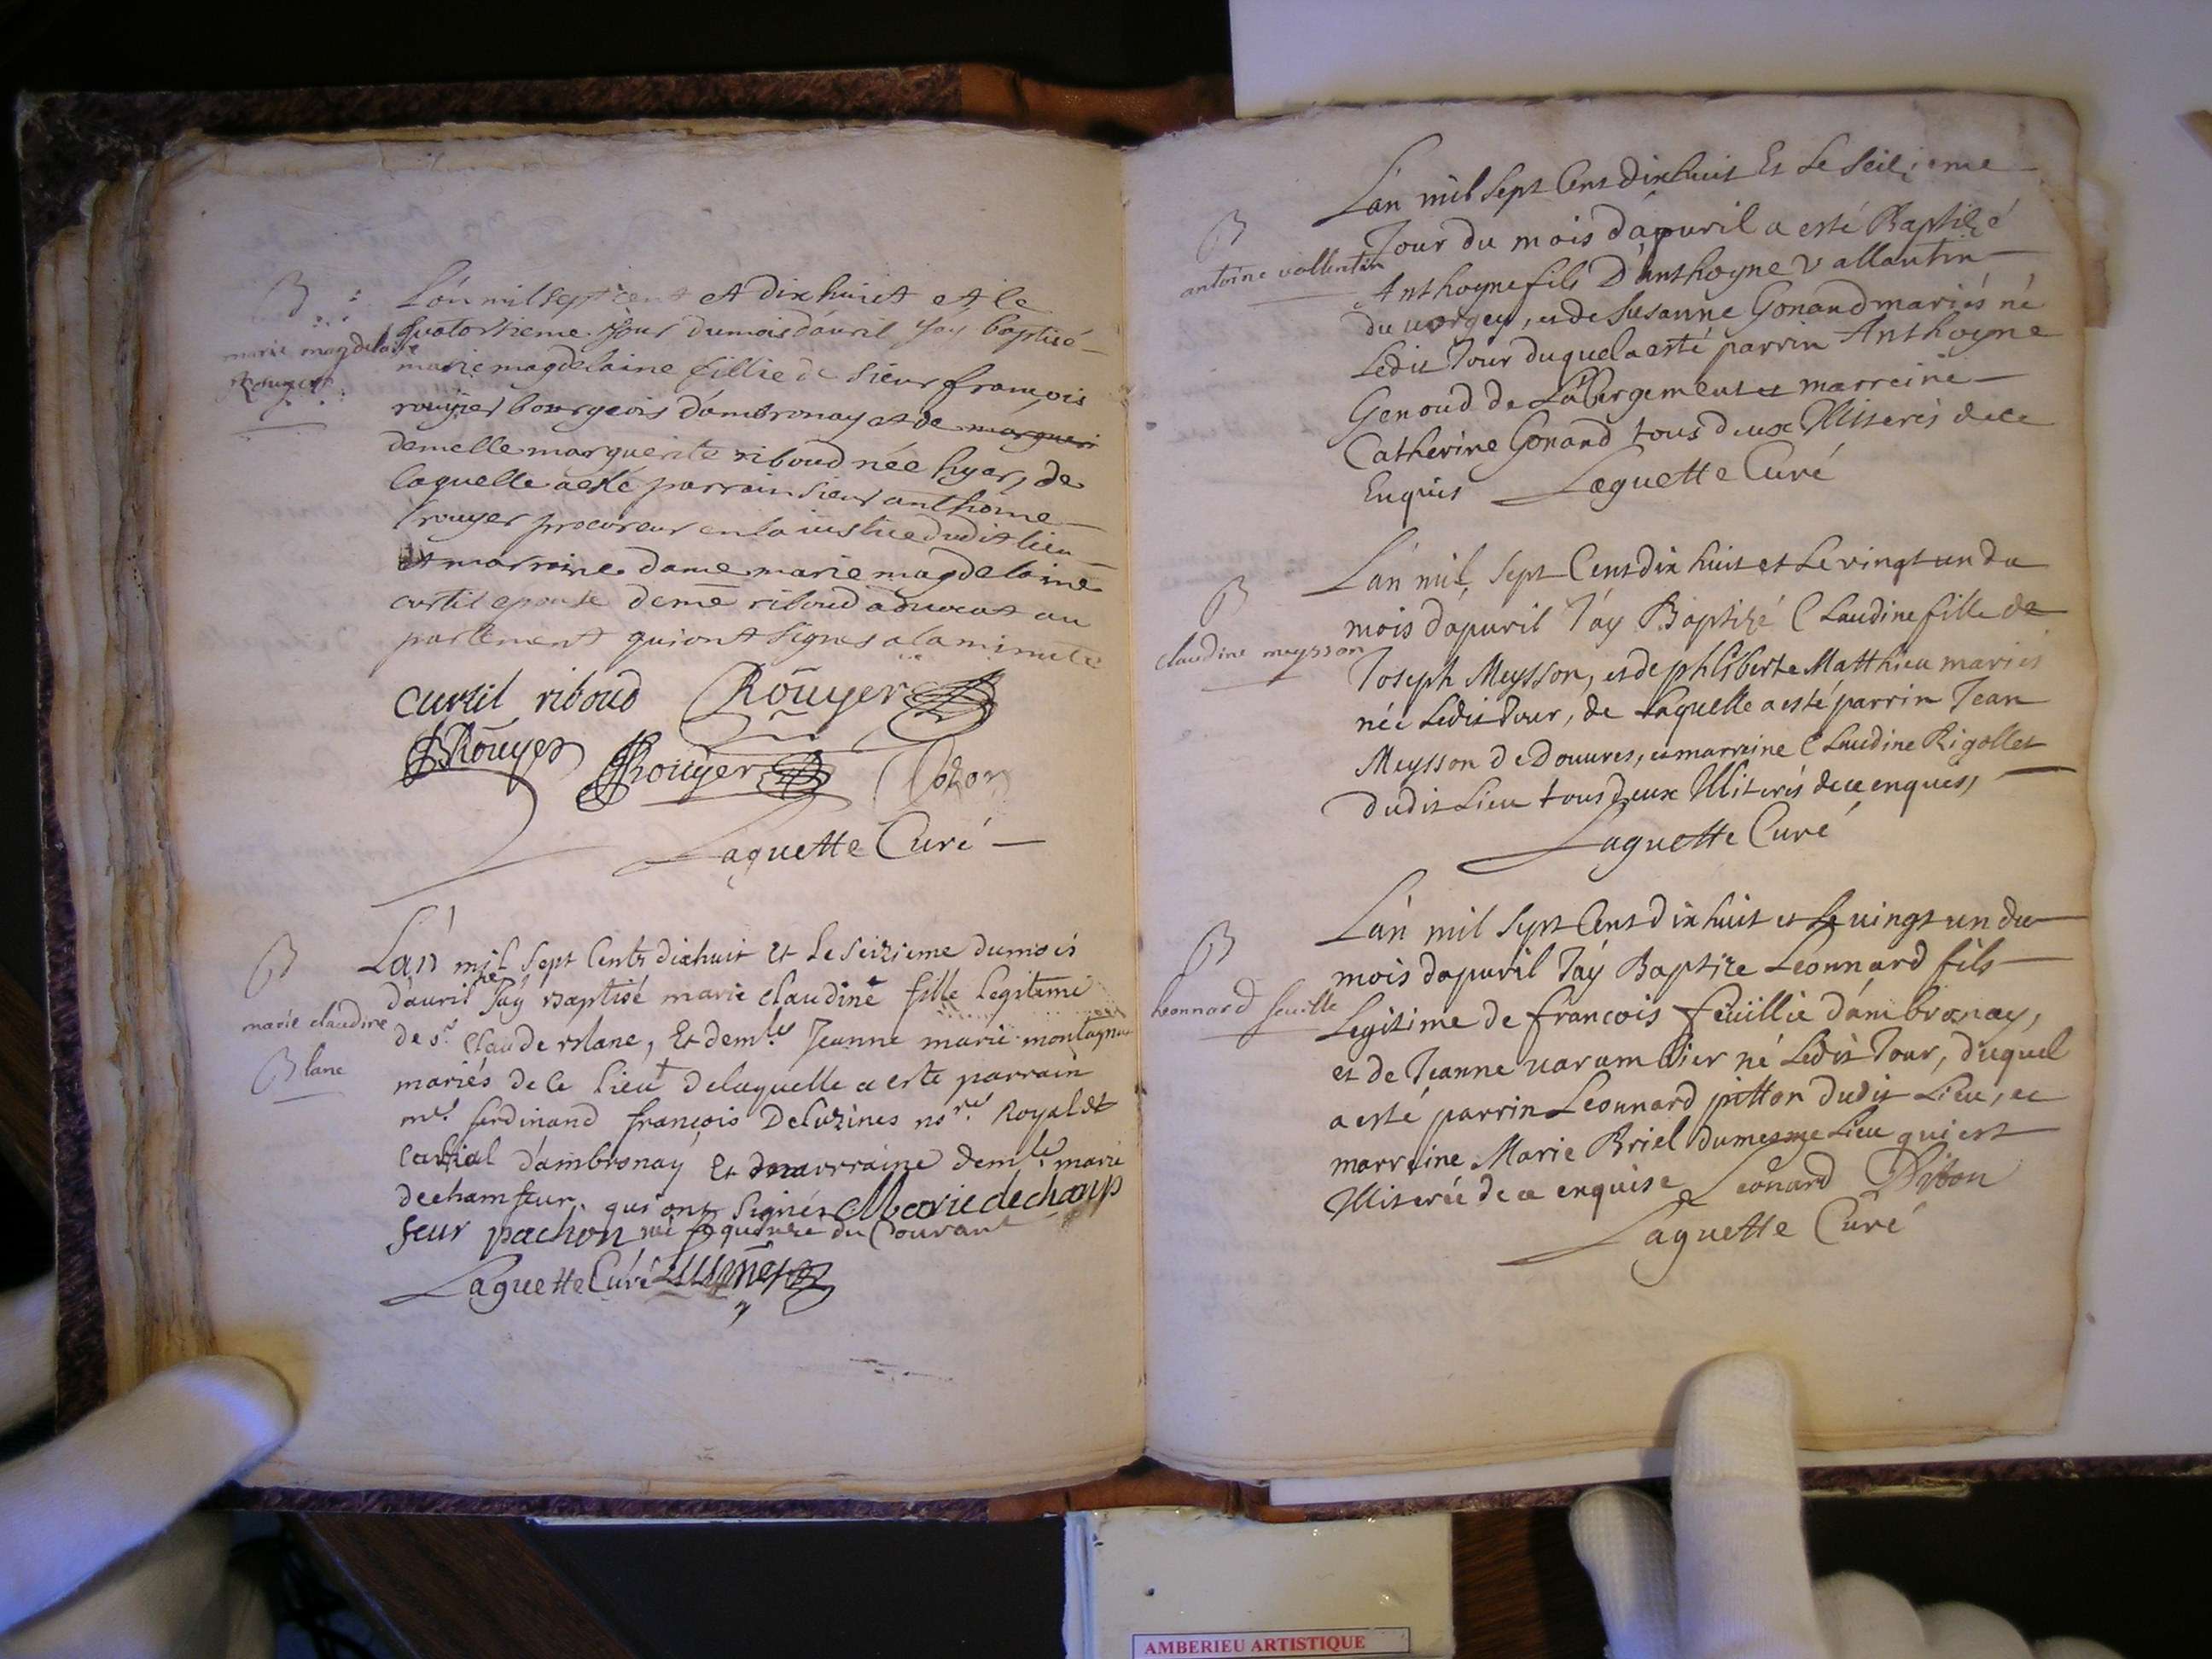 B
marie magdelaine
Rouyer
L'an mil sept cent et dix huict et le
quatorsieme jour dumois d'auril jay baptisé
marie magdelaine fillie de sieur françois
rouyer bourgeois d'ambronay et de margueri
demelle marguerite riboud née hyer, de
laquelle a esté parrain sieur anthoine
rouyer procureur en la iustice dudit lieu
et marraine dame marie magdelaine
curtil epouse de me riboud aduocat au
parlement qui ont signes a la minute
curtil riboud Rouyer
Rouyer Rouyer
Laguette Curé
B
marie claudine
Blanc
L'an mil sept Cents dixhuit et le seizieme dumois
dauril jay Baptisé marie claudine fille legitime
de sr. Claude Blanc, Et demlle Jeanne marie montagn
mariés de ce lieu delaquelle a esté parrain
mre. ferdinand françois Deluzines nore. Royal et
Curial d'ambronay Et marraine demlle marie
dechamfeur. qui ont signés Marie dechamp
feur pachon née le quinze du Courant
Laguette Curé
B
antoine vallentin
L'an mil sept Cent dixhuit Et le Seizieme
Jour du mois d'apuril a esté Baptizé
Anthoyne fils D'anthoyne vallantin
du uorgey, et de Susanne Gonand mariés né
Ledit Jour duquel a esté parrin Anthoyne
Genoud de Labergement et marreine
Catherine Gonand tous deux Illiterés de ce
Enquis Laguette Curé
B
claudine meysson
L'an mil, sept Cent dix huit et Le vingt un du
mois dapuril J'ay Baptizé Claudine fille de
Joseph Meysson, et de phliberte Matthieu mariés
née Ledit Jour, de laquelle a esté parrin Jean
Meysson de Douures, et marreine Claudine Rigollet
dudit Lieu tous deux Illiterés de ce enques,
Laguette Curé
B
leonnard feuille
L'an mil sept Cent dix huit et Le uingt un du
mois dapuril J'ay Baptize Leonnard fils
Legitime de francois feuillie d'ambronay,
et de Jeanne uarambier né Ledit Jour, duquel
a esté parrin Leonnard pitton dudit Lieu, et
marreine Marie Briel du mesme Lieu qui est
Illiterée de ce enquise Leonard Pitton
Laguette Curé
AMBERIEU ARTISTIQUE